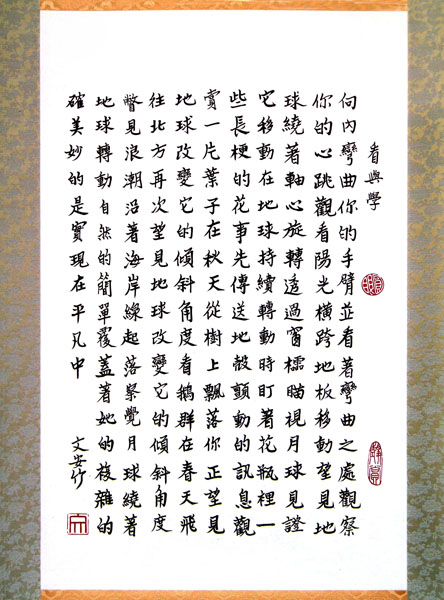 看與學
向內彎曲你的手臂並看著彎曲之處觀察
你的心跳觀看陽光橫跨地板移動望見地
球繞著軸心旋轉透過窗檽瞄視月球見證
它移動在地球持續轉動時盯著花瓶裡一
些長梗的花事先傳送地殼顫動的訊息觀
賞一片葉子在秋天從樹上飄落你正望見
地球改變它的傾斜角度看鵝群在春天飛
往北方再次望見地球改變它的傾斜角度
瞥見浪潮沿著海岸線起落察覺月球繞著
地球轉動自然的簡單覆蓋著她的複雜的
確美妙的是實現在平凡中
文安竹